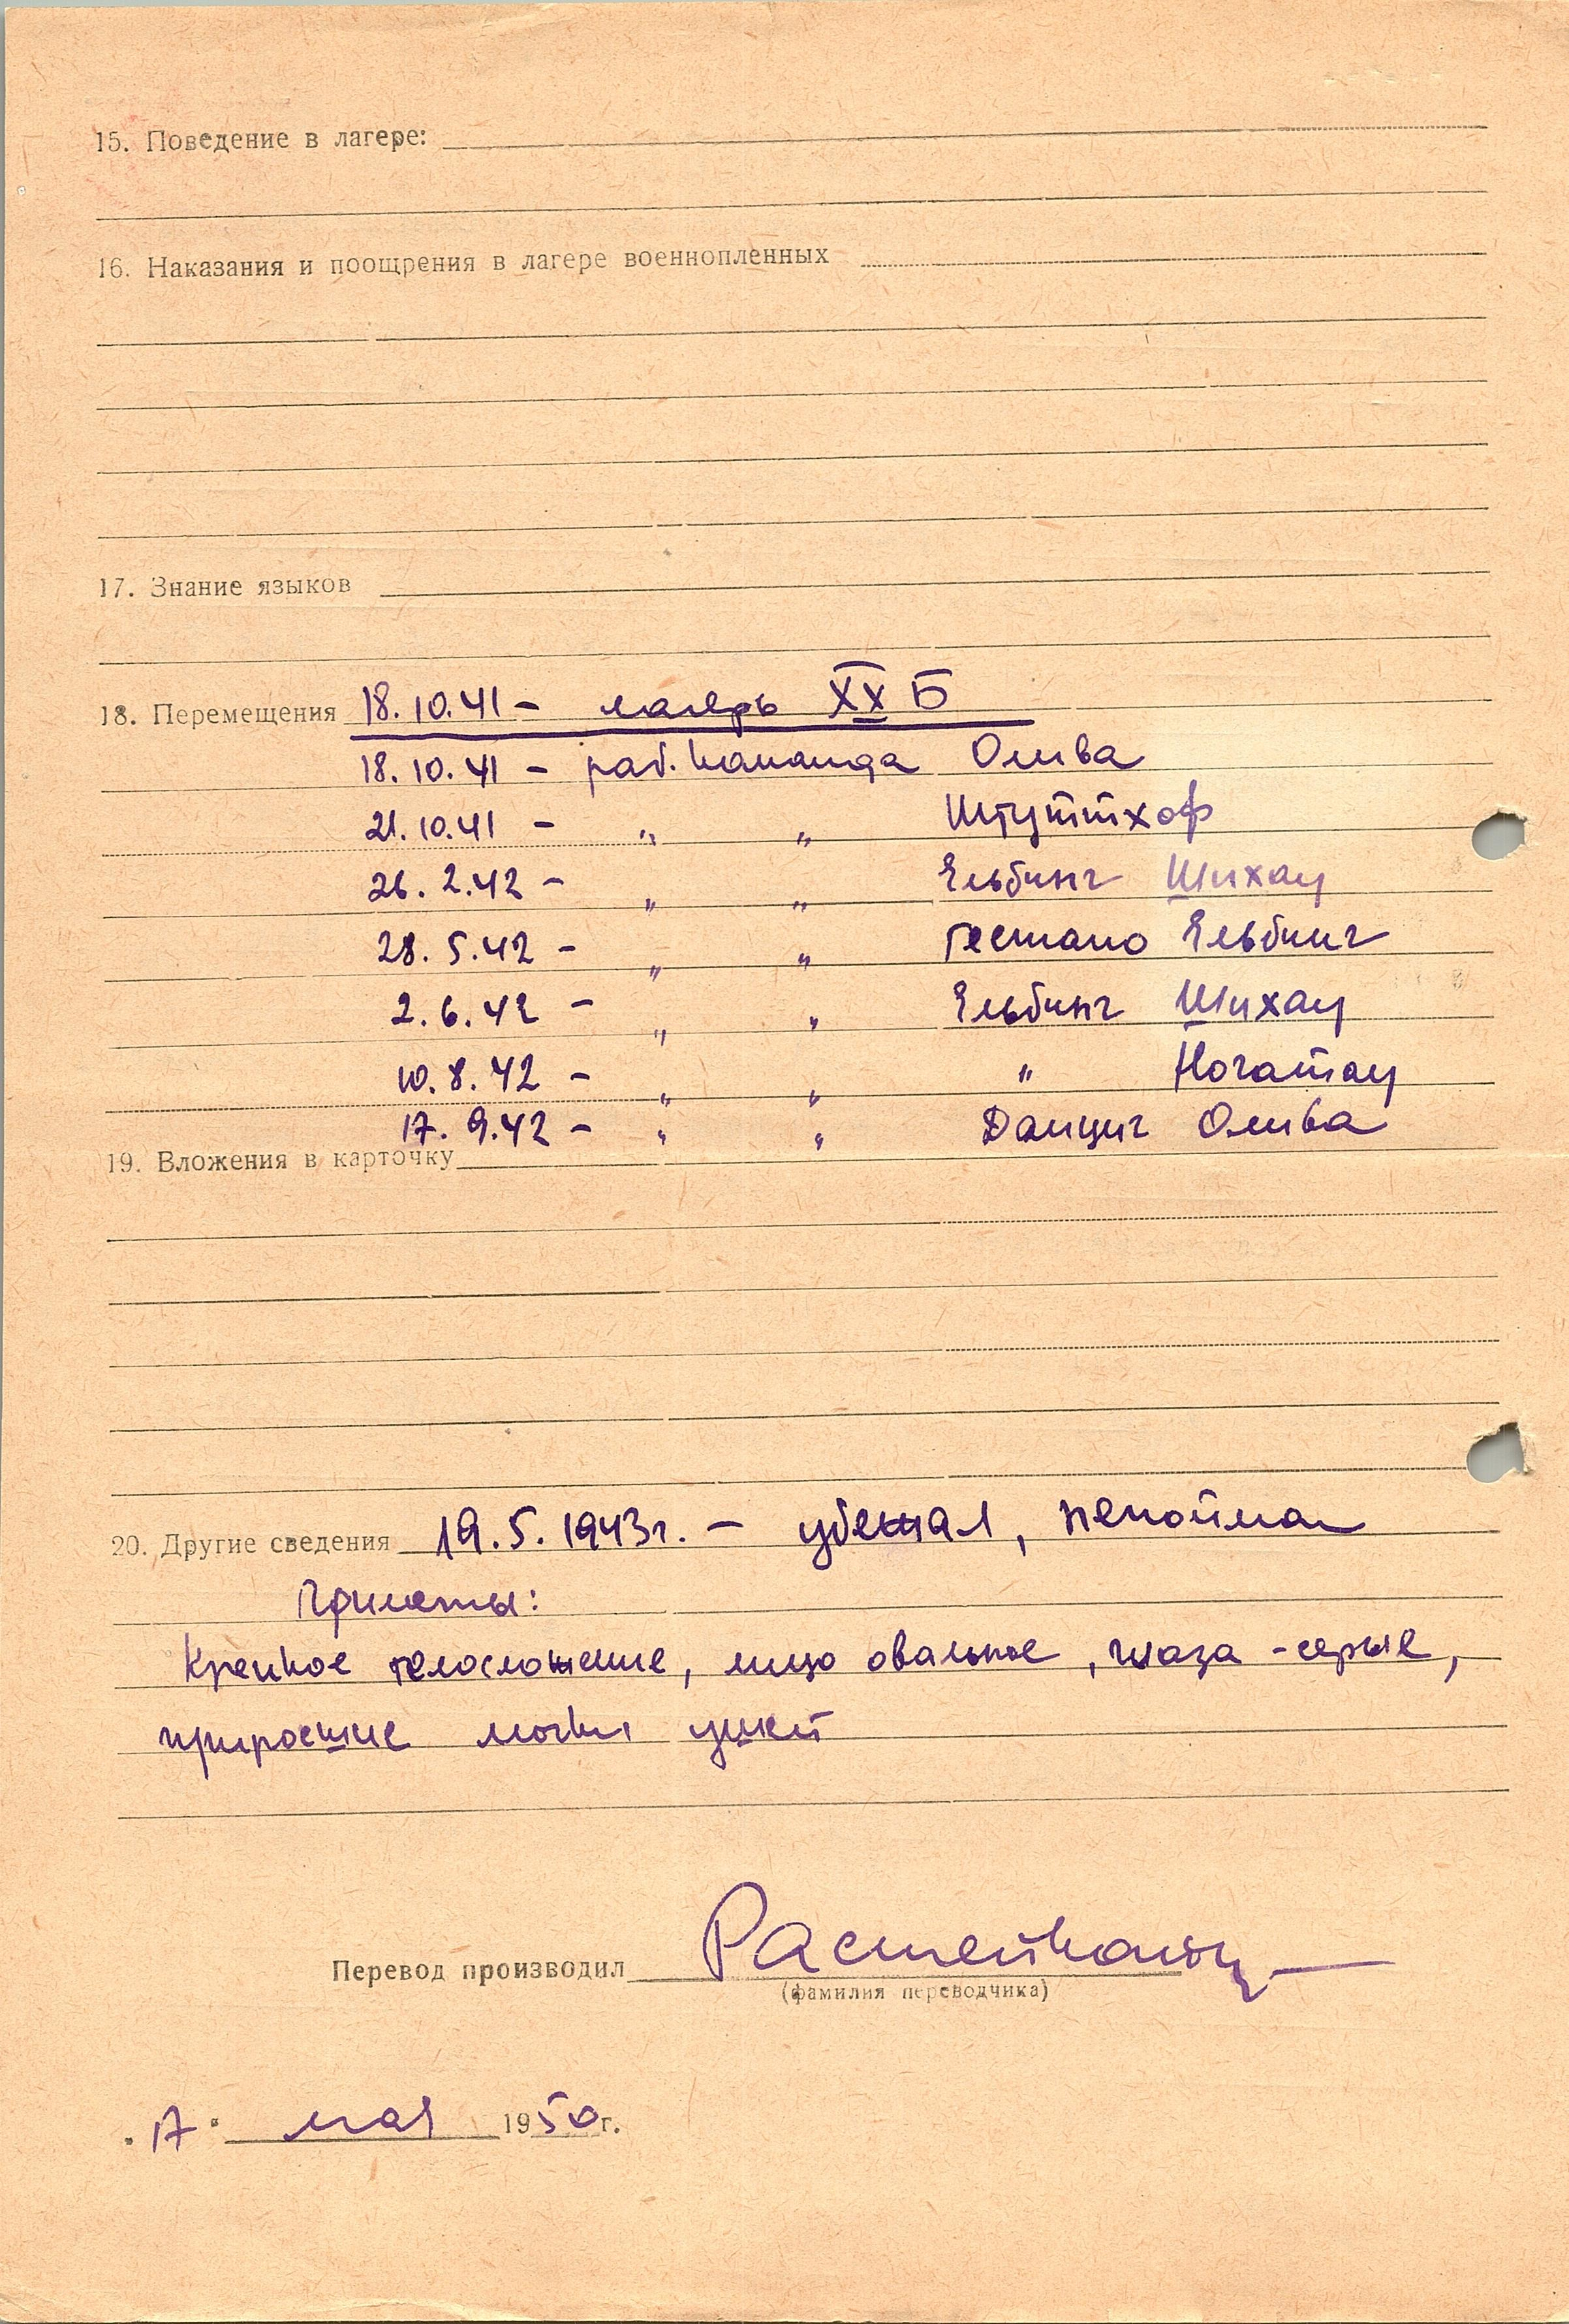 15. Поведение в лагере:
16. Наказания и поощрения в лагере военнопленных
17. Знание языков
18. Перемещения 18.10.41 - лагерь XX Б
18.10.41 - раб. команда Олива
21.10.41 - " " Штуттхоф
26.2.42 - " " Ельбинг Шихау
28.5.42 - " " гестапо Ельбинг
2.6.42 - " " Ельбинг Шихау
10.8.42 - " " " Ногатау
17.9.42 - " " Данциг Олива
19. Вложения в карточку
20. Другие сведения 19.5.1943г. - убежал, непойман
Приметы:
Крепкое телосложение, лицо овальное, глаза - серые,
приросшие мочки ушей
Перевод производил
(фамилия переводчика)
"17" мая 1950г.